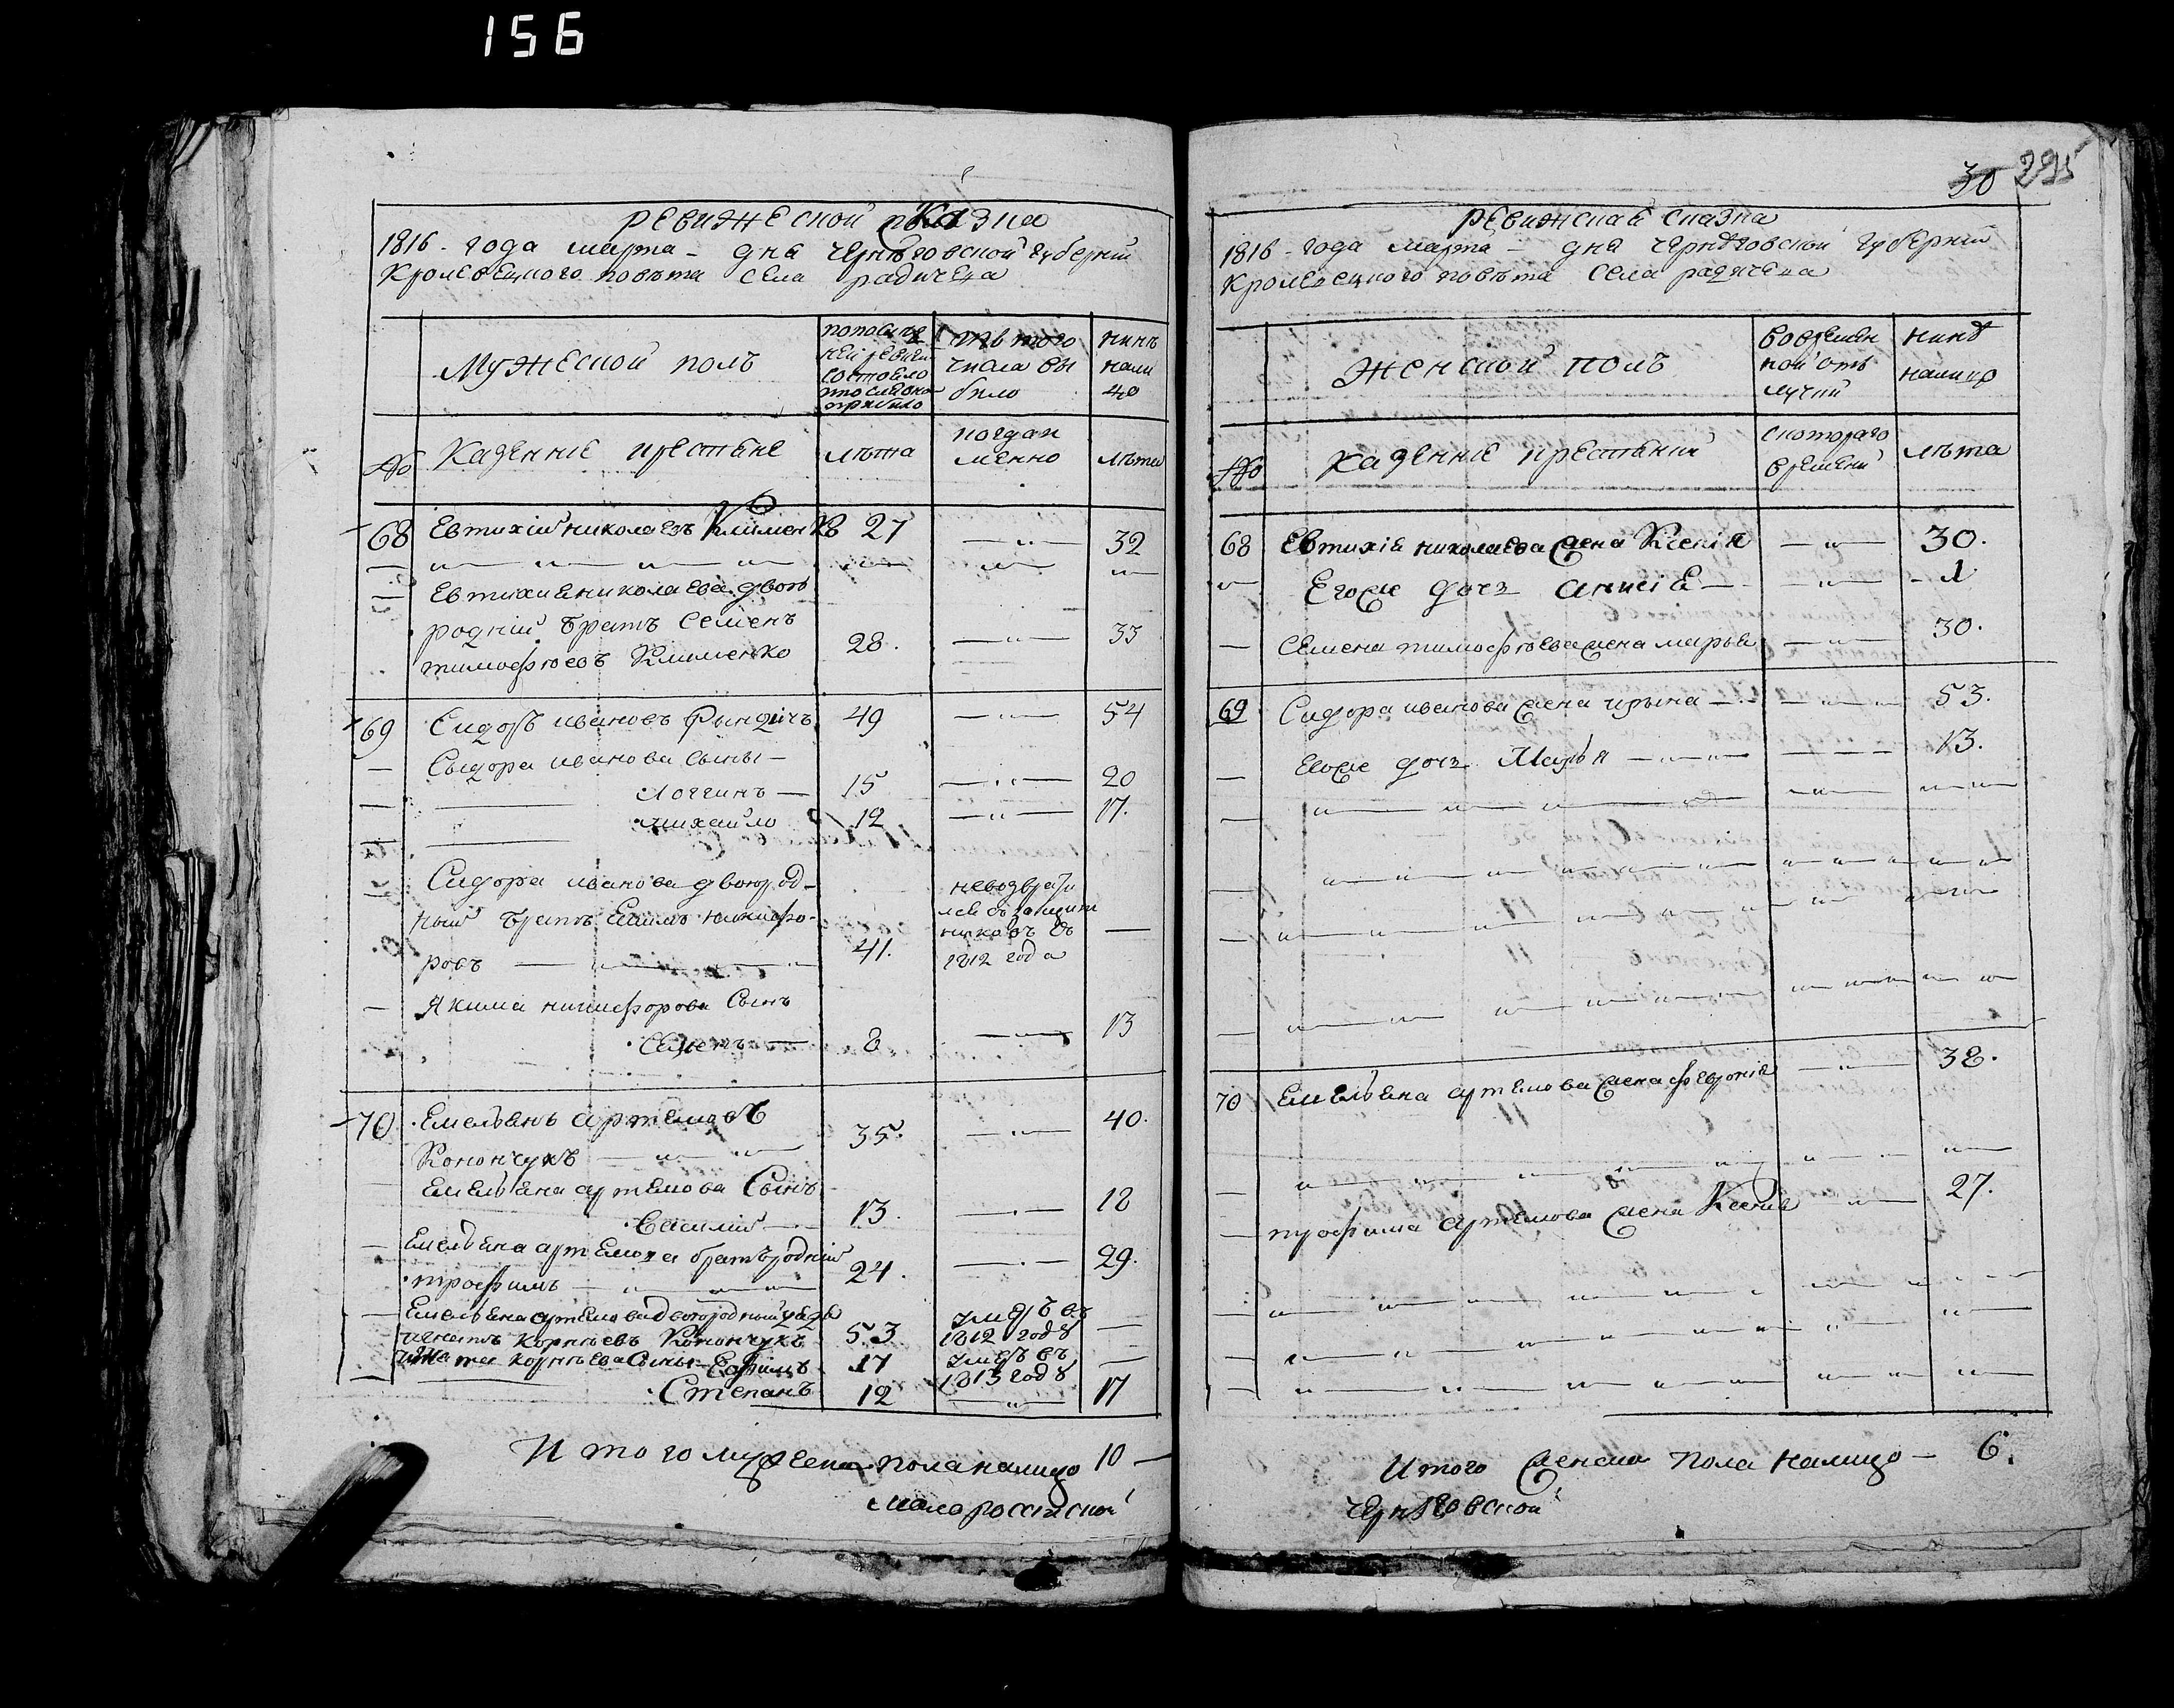 156
ревижской сказка
1816 - года марта - дня черниговской губернии
кролевецкого повета села радичева
Мужеской полъ
по последней ревизии состояло и после оной прибыло
изъ того числа выбыло
нинѣ налицо
№ Казенніе крестяне
лѣта
когда именно
лѣта
68 Евтихій николаевъ Клименко 27 — 32
Евтихия николаева двою
родній братъ Семенъ
тимофѣевъ Клименко 28. — 33
69 Сидоръ ивановъ Рындичъ 49 — 54
Сыдора иванова сыны —
Логгинъ — 15 — 20
михайло 12 — 17.
Сидора иванова двоюрод-
ный братъ Екимъ никифо-
ровъ — 41. невозврати
лся
никовъ въ —
1812 года
Якима никифорова Сынъ
Семенъ — 8 — 13
70 Емельянъ артемовъ
Конончукъ — 35. — 40.
Емельяна артемова Сынъ
Василий — 13. — 18
Емельяна артемова братъ родній
трофимъ — 24. — 29.
Емельяна артемова двоюродный дядя
игнатъ корнѣевъ Конончукъ 53 умеръ въ 1812 годѣ —
игната корнѣева Сыны — Ефимъ 17 умеръ въ 1813 годѣ —
Степанъ 12 — 17
Итого мужеска пола налицо 10 —
малороссійской
30 295
ревижская сказка
1816 - года марта - дня черниговской губерній
кролевецкого повѣта села радичева
женской полъ
во временной отлучкѣ
нинѣ налицо
№ казенніе крестянки
с котораго времени
лѣта
68 Евтихія николаева жена Ксенія — 30.
Егоже дочь Анисія — - 1
— Семена тимофѣева жена марья — 30.
69 Сидора иванова жена ирына — 53.
— Егоже дочь Марья — 13.
70 Емельяна артемова жена феврония — 38.
— трофима артемова жена Ксения — 27.
Итого женска пола налицо — 6.
черниговской